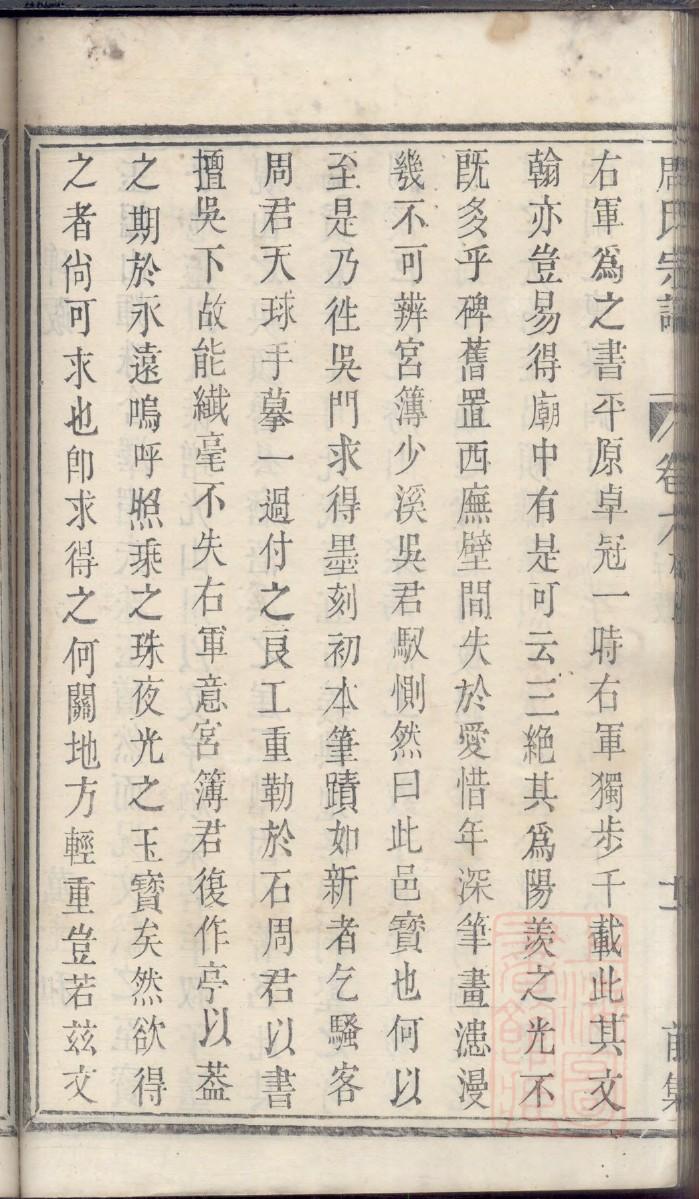 周氏宗譜 卷六 前集
右軍爲之書平原卓冠一時右軍獨步千載此其文
翰亦豈易得廟中有是可云三絕其爲陽羨之光不
旣多乎碑舊置西廡壁間失於愛惜年深筆畫漶漫
幾不可辨宮簿少溪吳君馭惻然曰此邑寶也何以
至是乃徃吳門求得墨刻初本筆蹟如新者乞騷客
周君天球手摹一過付之良工重勒於石周君以書
擅吳下故能纎毫不失右軍意宮簿君復作亭以蓋
之期於永遠嗚呼照乘之珠夜光之玉寶矣然欲得
之者尙可求也卽求得之何關地方輕重豈若玆文